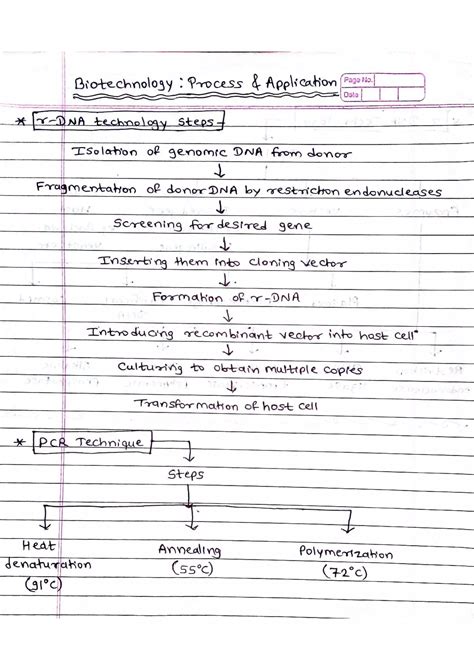 Biotechnology : Process & Application
Page No.
Date
* r-DNA technology Steps-
Isolation of genomic DNA from donor
Fragmentation of donor DNA by restriction endonucleases
Screening for desired gene
Inserting them into cloning vector
Formation of r-DNA
Introducing recombinant vector into host cell
Culturing to obtain multiple copies
Transformation of host cell
* PCR Technique
Steps
Heat Annealing Polymerization
denaturation (55°C) (72°C)
(91°C)